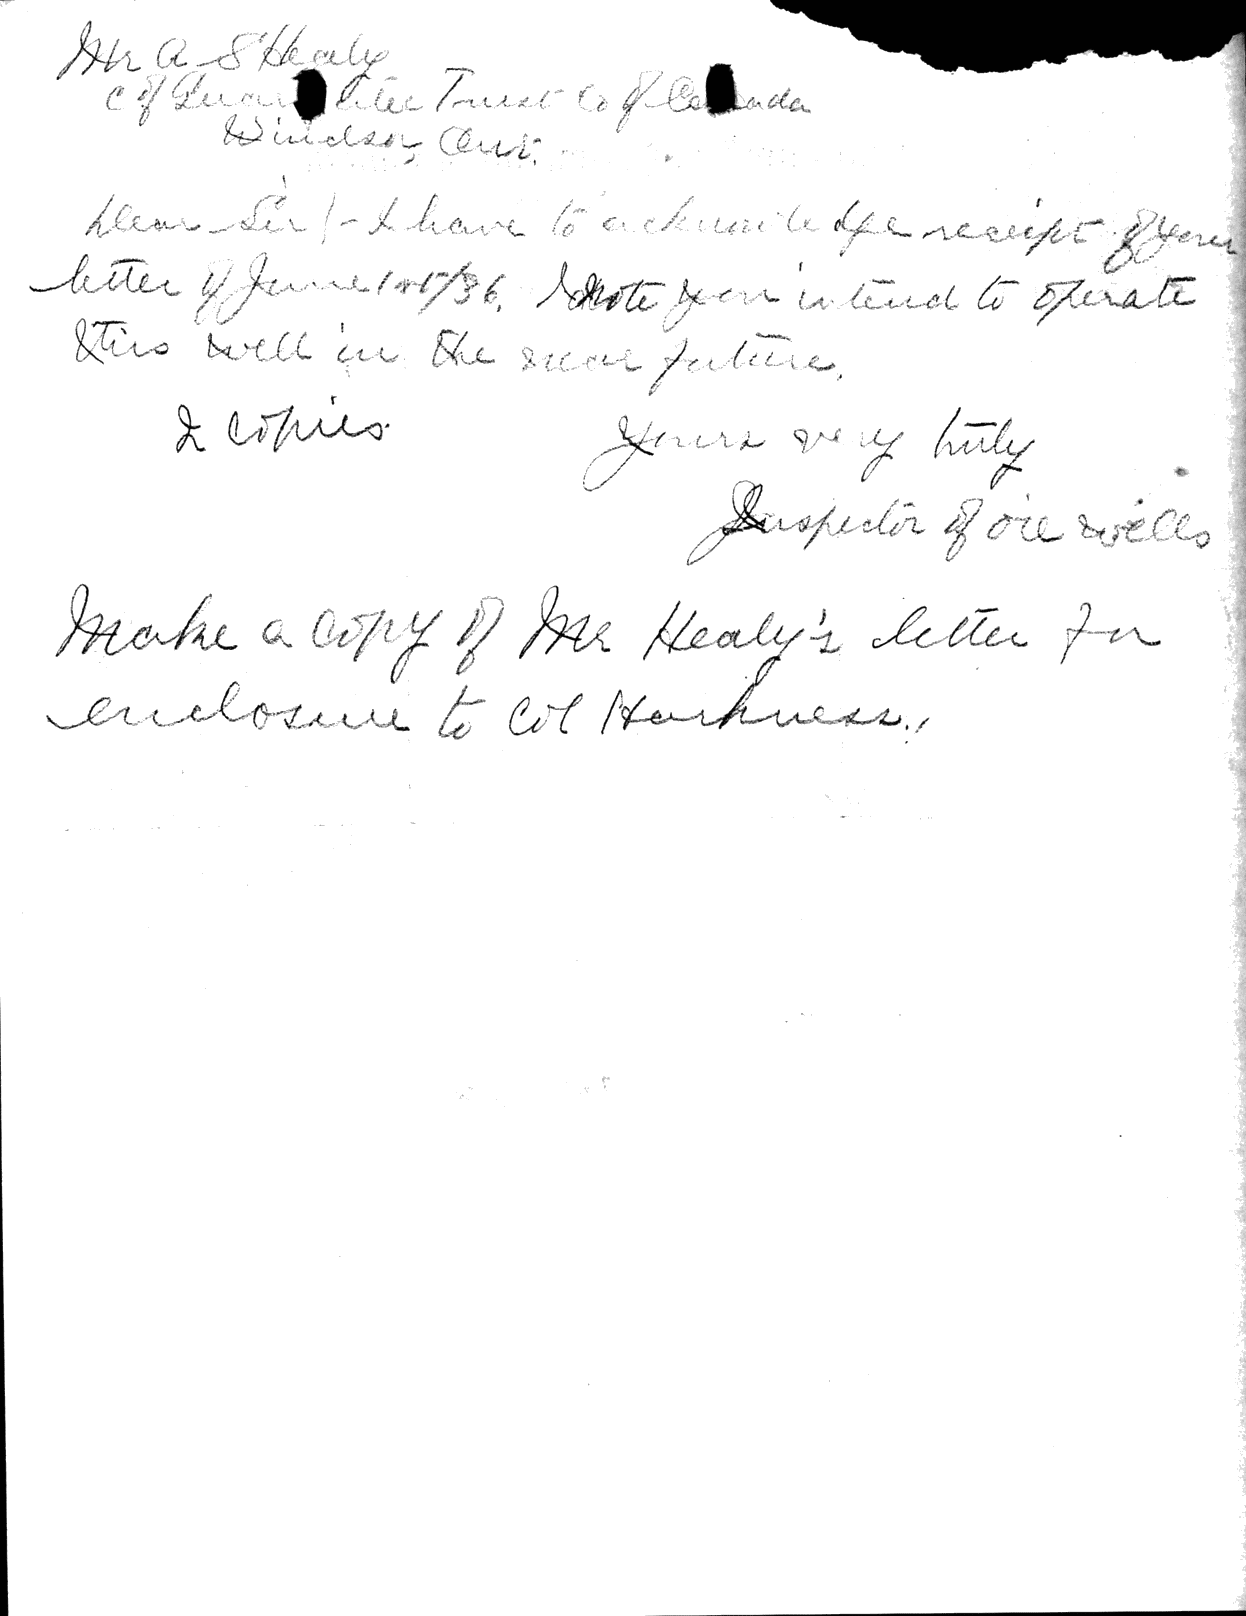 Mr A S Healy
c of Guarantee Trust Co of Canada
Windsor, Ont.
Dear Sir/- I have to acknowledge receipt of your
letter of June 1st/36. I note you intend to operate
this well in the near future.
2 copies. Yours very truly
Inspector of oil wells
Make a copy of Mr Healy's letter for
enclosure to Col Harkness.,